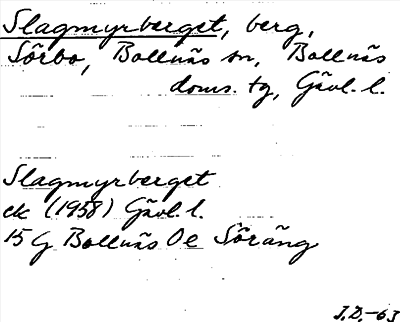 Slagmyrberget, berg,
Sörbo, Bollnäs sn, Bollnäs
doms. tg, Gävl. l.
Slagmyrberget
ek (1958) Gävl. l.
15 G Bollnäs Oe Söräng
J.D.-63